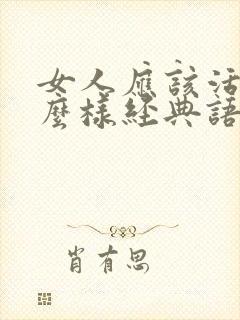 女人應該活
麼樣經典語
肖有思